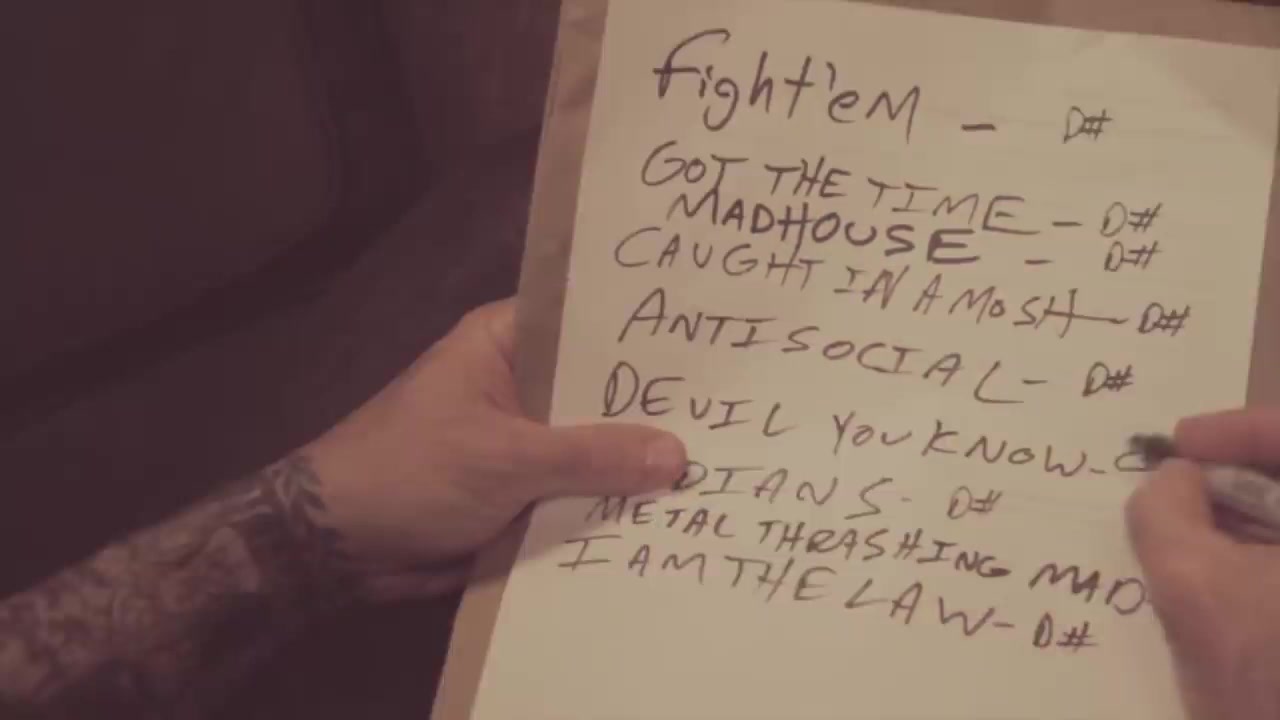 Fight'em - D#
GOT THE TIME - D#
MADHOUSE - D#
CAUGHT IN A MOSH - D#
ANTISOCIAL - D#
DEVIL YOU KNOW -
DIANS - D#
METAL THRASHING MAD
I AM THE LAW - D#